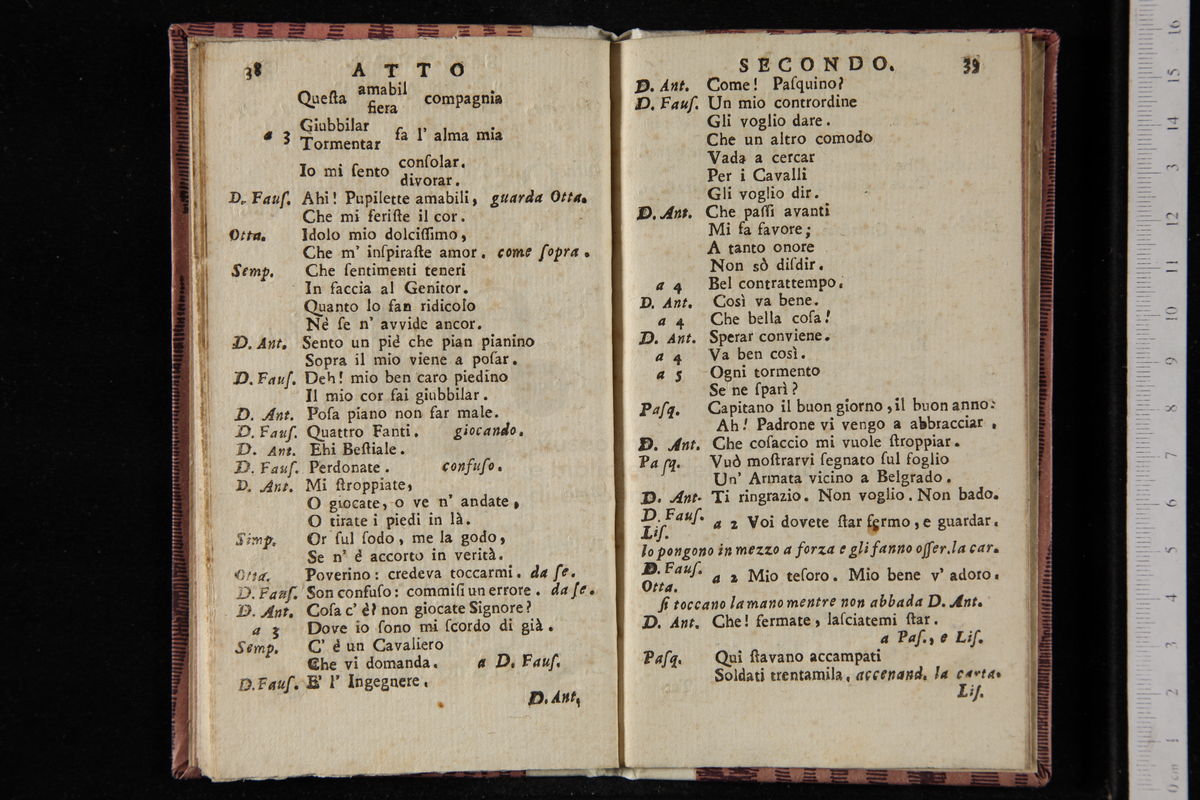 38 ATTO
Queſta amabil compagnia
fiera
a 3 Giubbilar fa l' alma mia
Tormentar
Io mi ſento conſolar.
divorar.
D. Fauſ. Ahi! Pupilette amabili, guarda Otta.
Che mi feriſte il cor.
Otta. Idolo mio dolciſſimo,
Che m' inſpiraſte amor. come ſopra.
Semp. Che ſentimenti teneri
In faccia al Genitor.
Quanto lo fan ridicolo
Nè ſe n' avvide ancor.
D. Ant. Sento un piè che pian pianino
Sopra il mio viene a poſar.
D. Fauſ. Deh! mio ben caro piedino
Il mio cor fai giubbilar.
D. Ant. Poſa piano non far male.
D. Fauſ. Quattro Fanti. giocando.
D. Ant. Ehi Beſtiale.
D. Fauſ. Perdonate. confuſo.
D. Ant. Mi ſtroppiate,
O giocate, o ve n' andate,
O tirate i piedi in là.
Simp. Or ſul ſodo, me la godo,
Se n' è accorto in verità.
Otta. Poverino: credeva toccarmi. da ſe.
D. Fauſ. Son confuſo: commiſi un errore. da ſe.
D. Ant. Coſa c' è? non giocate Signore?
a 3 Dove io ſono mi ſcordo di già.
Semp. C' è un Cavaliero
Che vi domanda. a D. Fauſ.
D. Fauſ. E' l' Ingegnere.
D. Ant,
SECONDO. 39
D. Ant. Come! Paſquino?
D. Fauſ. Un mio contrordine
Gli voglio dare.
Che un altro comodo
Vada a cercar
Per i Cavalli
Gli voglio dir.
D. Ant. Che paſſi avanti
Mi fa favore;
A tanto onore
Non sò diſdir.
a 4 Bel contrattempo.
D. Ant. Così va bene.
a 4 Che bella coſa!
D. Ant. Sperar conviene.
a 4 Va ben così.
a 5 Ogni tormento
Se ne ſparì?
Paſq. Capitano il buon giorno, il buon anno:
Ah! Padrone vi vengo a abbracciar.
D. Ant. Che coſaccio mi vuole ſtroppiar.
Paſq. Vuò moſtrarvi ſegnato ſul foglio
Un' Armata vicino a Belgrado.
D. Ant. Ti ringrazio. Non voglio. Non bado.
D. Fauſ. a 2 Voi dovete ſtar fermo, e guardar.
Liſ.
lo pongono in mezzo a forza e gli fanno oſſer. la car.
D. Fauſ. a 2 Mio teſoro. Mio bene v' adoro.
Otta.
ſi toccano la mano mentre non abbada D. Ant.
D. Ant. Che! fermate, laſciatemi ſtar.
a Paſ., e Liſ.
Paſq. Qui ſtavano accampati
Soldati trentamila. accenand. la carta.
Liſ.
16
15
14
13
12
11
10
9
8
7
6
5
4
3
2
1
0 cm